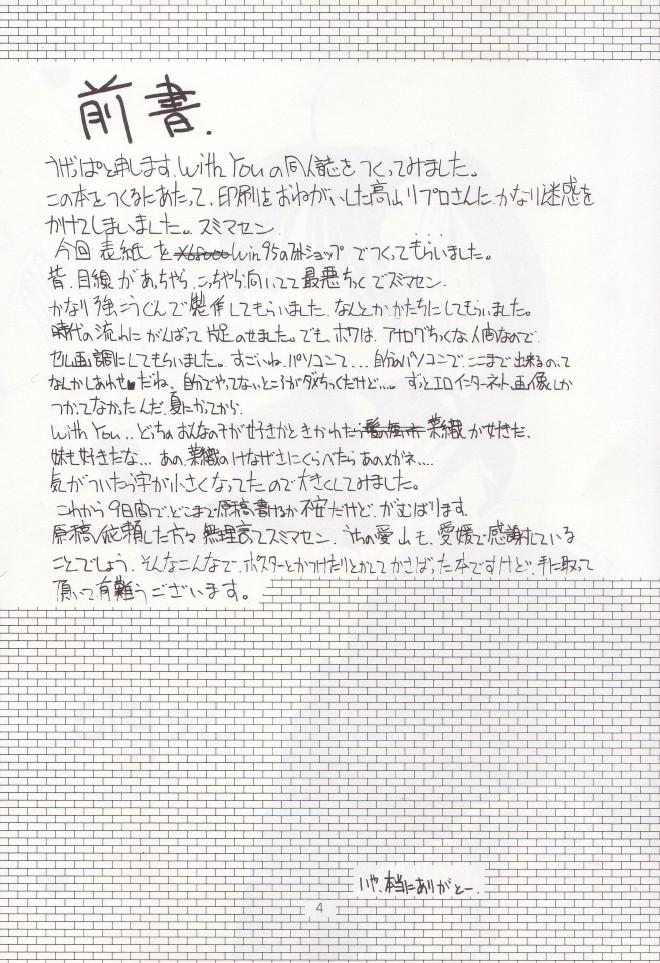 前書.
うげっぱと申します。With Youの同人誌をつくってみました。
この本をつくるにあたって、印刷をおねがいした高山リプロさんに、かなり迷惑を
かけてしまいました。スミマセン. ...
今回 表紙を X68000 Win95のフォトショップ でつくってもらいました。
昔、目線があっちやら、こっちやら向いてて最悪ちっくでズミマセン.
かなり強こうぐんで製作してもらいました. なんとか、かたちにしてもらいました。
時代の流れにがんばって片足のせました。でも、ボクは、アナログちくな人間なので、
セル画調にしてもらいました。すごいね、パソコンて... 自分のパソコンで、ここまで出来るのって
なんかしあわせ♥だね、自分でやってないところがダメちっくだけど...。ずっとエロインターネット画像しか
つかってなかったんだ、夏にかってから.
With You.. どっちのおんなの子が好きかときかれたら 菜織が好きだ、
妹も好きだな... あの、菜織のけなげさにくらべたらあのメガネ....
気がついたら字が小さくなってたので大きくしてみました。
これから9日間で、どこまで原稿書けるか不安だけど、がむばります.
原稿依頼した方々 無理言ってスミマセン. うちの愛山も、愛媛で感謝している
ことでしょう. そんなこんなで、ポスターとかつけたりとかしてかさばった本ですけど、手に取って
頂いて有難うございます。
いや、本当にありがとー.
4